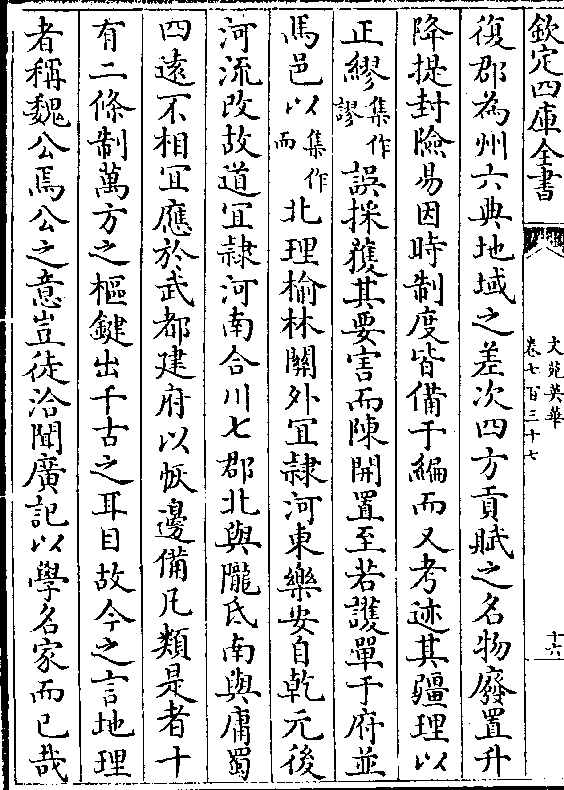 欽定四庫全書
文苑英華
卷七百三十七
十六
復郡為州六典地域之差次四方貢賦之名物廢置升
降提封險易因時制度皆備于編而又考迹其疆理以
正繆集作謬誤採獲其要害而陳開置至若護單于府並
馬邑以集作而北理榆林關外宜隸河東樂安自乾元後
河流改故道宜隸河南合川七郡北與隴氐南與庸蜀
四遠不相宜應於武都建府以恢邊備凡類是者十
有二條制萬方之樞鍵出千古之耳目故今之言地理
者稱魏公焉公之意豈徒洽聞廣記以學名家而已哉